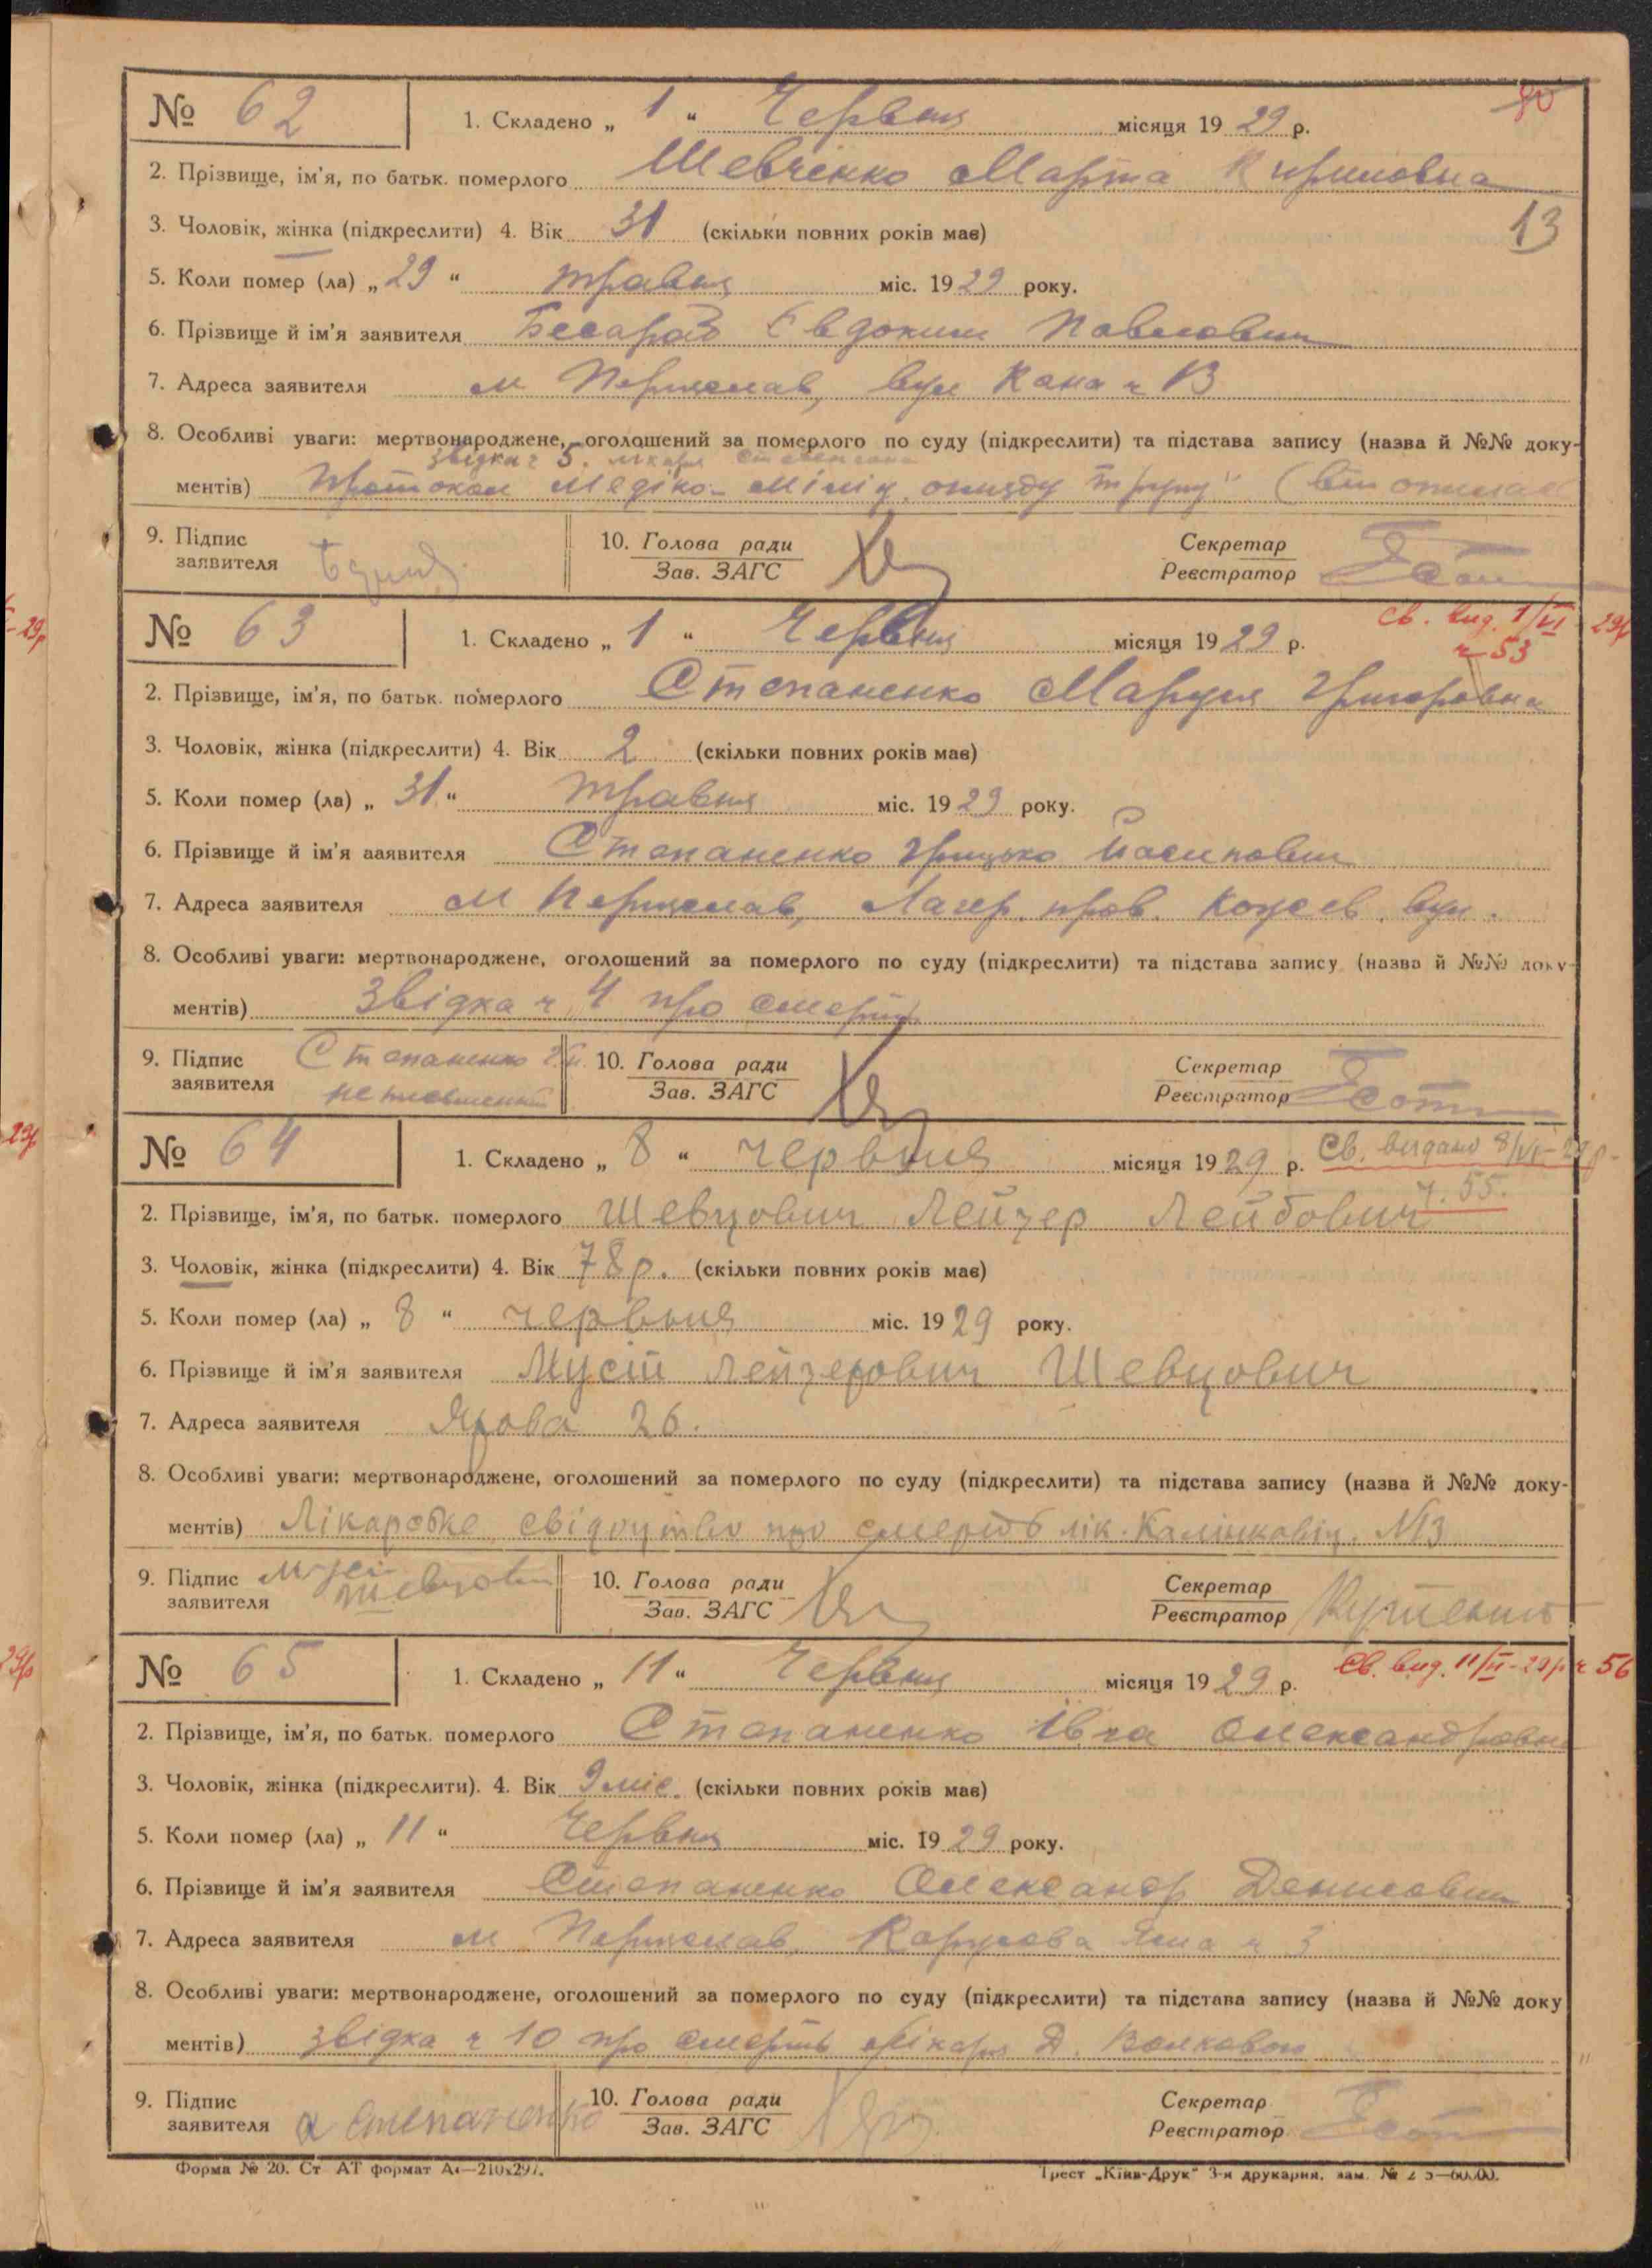 № 62 1. Складено „ 1 “ Червня місяця 1929 р.
2. Прізвище, ім'я, по батьк. померлого Шевченко Марта Кириловна
13
3. Чоловік, жінка (підкреслити) 4. Вік 31 (скільки повних років має)
5. Коли помер (ла) „ 29 “ травня міс. 1929 року.
6. Прізвище й ім'я заявителя Бесараб Євдоким Павлович
7. Адреса заявителя м Переяслав, вул
8. Особливі уваги: мертвонароджене, оголошений за померлого по суду (підкреслити) та підстава запису (назва й №№ доку-
звідка ч 5. лікаря
ментів) Протокол трупу
9. Підпис заявителя 10. Голова ради Зав. ЗАГС Секретар Реєстратор
№ 63 1. Складено „ 1 “ Червня місяця 1929 р. св. вид. 1/VI - 29р
ч 53
2. Прізвище, ім'я, по батьк. померлого Степаненко Маруся Григоровна
3. Чоловік, жінка (підкреслити) 4. Вік 2 (скільки повних років має)
5. Коли помер (ла) „ 31 “ травня міс. 1929 року.
6. Прізвище й ім'я заявителя Степаненко Грицько Йосипович
7. Адреса заявителя м Переяслав, вул.
8. Особливі уваги: мертвонароджене, оголошений за померлого по суду (підкреслити) та підстава запису (назва й №№ доку-
ментів) Звідка ч 4 про смерть
9. Підпис заявителя Степаненко неписьменний 10. Голова ради Зав. ЗАГС Секретар Реєстратор
№ 64 1. Складено „ 8 “ червьня місяця 1929 р. Св. видано 8/VI-29р.
ч. 55.
2. Прізвище, ім'я, по батьк. померлого Шевцович Лейзер Лейбович
3. Чоловік, жінка (підкреслити) 4. Вік 78р. (скільки повних років має)
5. Коли помер (ла) „ 8 “ червьня міс. 1929 року.
6. Прізвище й ім'я заявителя Мусій Лейзерович Шевцович
7. Адреса заявителя Ярова 26.
8. Особливі уваги: мертвонароджене, оголошений за померлого по суду (підкреслити) та підстава запису (назва й №№ доку-
ментів) Лікарське свідоцтво про смерть лік. №13
9. Підпис заявителя Мусій Шевцович 10. Голова ради Зав. ЗАГС Секретар Реєстратор
№ 65 1. Складено „ 11 “ Червня місяця 1929 р. Св. вид. 11/VI-29р ч 56
2. Прізвище, ім'я, по батьк. померлого Степаненко Івга Олександровна
3. Чоловік, жінка (підкреслити). 4. Вік 9 міс. (скільки повних років має)
5. Коли помер (ла) „ 11 “ Червня міс. 1929 року.
6. Прізвище й ім'я заявителя Степаненко Олександр Денисович
7. Адреса заявителя м Переяслав, ч 3
8. Особливі уваги: мертвонароджене, оголошений за померлого по суду (підкреслити) та підстава запису (назва й №№ доку
ментів) звідка ч 10 про смерть лікаря Д. Волкового
9. Підпис заявителя А Степаненко 10. Голова ради Зав. ЗАГС Секретар Реєстратор
Форма № 20. Ст АТ формат А4—210х297. Трест „Київ-Друк“ 3-я друкарня, зам. №